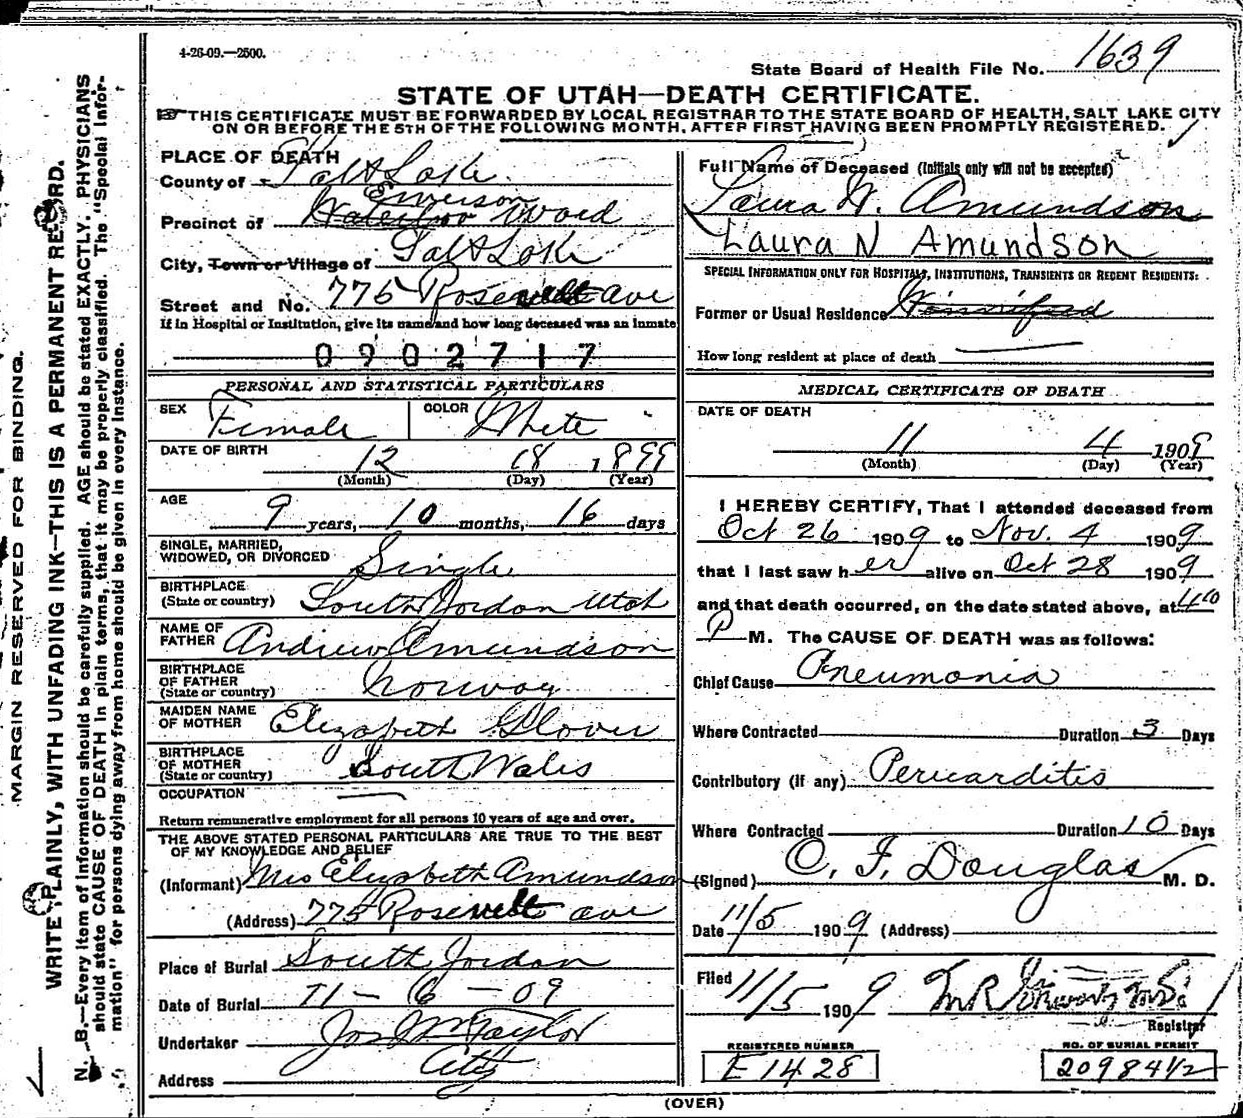 4-26-09.—2500.
State Board of Health File No. 1639
STATE OF UTAH—DEATH CERTIFICATE.
THIS CERTIFICATE MUST BE FORWARDED BY LOCAL REGISTRAR TO THE STATE BOARD OF HEALTH, SALT LAKE CITY
ON OR BEFORE THE 5TH OF THE FOLLOWING MONTH, AFTER FIRST HAVING BEEN PROMPTLY REGISTERED.
PLACE OF DEATH
County of Salt Lake
Emerson
Precinct of Waterloo Ward
City, Town or Village of Salt Lake
Street and No. 775 Rosevelt Ave
If in Hospital or Institution, give its name and how long deceased was an inmate
0902717
PERSONAL AND STATISTICAL PARTICULARS
SEX Female COLOR White
DATE OF BIRTH 12 18 1899
(Month) (Day) (Year)
AGE 9 years, 10 months, 16 days
SINGLE, MARRIED,
WIDOWED, OR DIVORCED Single
BIRTHPLACE
(State or country) South Jordan Utah
NAME OF
FATHER Andrew Amundson
BIRTHPLACE
OF FATHER
(State or country) Norway
MAIDEN NAME
OF MOTHER Elizabeth Glover
BIRTHPLACE
OF MOTHER
(State or country) South Wales
OCCUPATION
Return remunerative employment for all persons 10 years of age and over.
THE ABOVE STATED PERSONAL PARTICULARS ARE TRUE TO THE BEST
OF MY KNOWLEDGE AND BELIEF
(Informant) Mrs Elizabeth Amundson
(Address) 775 Rosevelt ave
Place of Burial South Jordan
Date of Burial 11-6-09
Undertaker Jos Wm Taylor
Address City
Full Name of Deceased (Initials only will not be accepted)
Laura N. Amundson
Laura N Amundson
SPECIAL INFORMATION ONLY FOR HOSPITALS, INSTITUTIONS, TRANSIENTS OR RECENT RESIDENTS:
Former or Usual Residence Winnifred
How long resident at place of death
MEDICAL CERTIFICATE OF DEATH
DATE OF DEATH
11 4 1909
(Month) (Day) (Year)
I HEREBY CERTIFY, That I attended deceased from
Oct 26 1909 to Nov. 4 1909
that I last saw her alive on Oct 28 1909
and that death occurred, on the date stated above, at 4 40
P M. The CAUSE OF DEATH was as follows:
Chief Cause Pneumonia
Where Contracted Duration 3 Days
Contributory (if any) Pericarditis
Where Contracted Duration 10 Days
(Signed) O. F. Douglas M. D.
Date 11/5 1909 (Address)
Filed 11/5 1909
Registrar
REGISTERED NUMBER
E 1428
NO. OF BURIAL PERMIT
20984 1/2
(OVER)
MARGIN RESERVED FOR BINDING.
WRITE PLAINLY, WITH UNFADING INK—THIS IS A PERMANENT RECORD.
N. B.—Every item of information should be carefully supplied. AGE should be stated EXACTLY. PHYSICIANS
should state CAUSE OF DEATH in plain terms, that it may be properly classified. The "Special Infor-
mation" for persons dying away from home should be given in every instance.